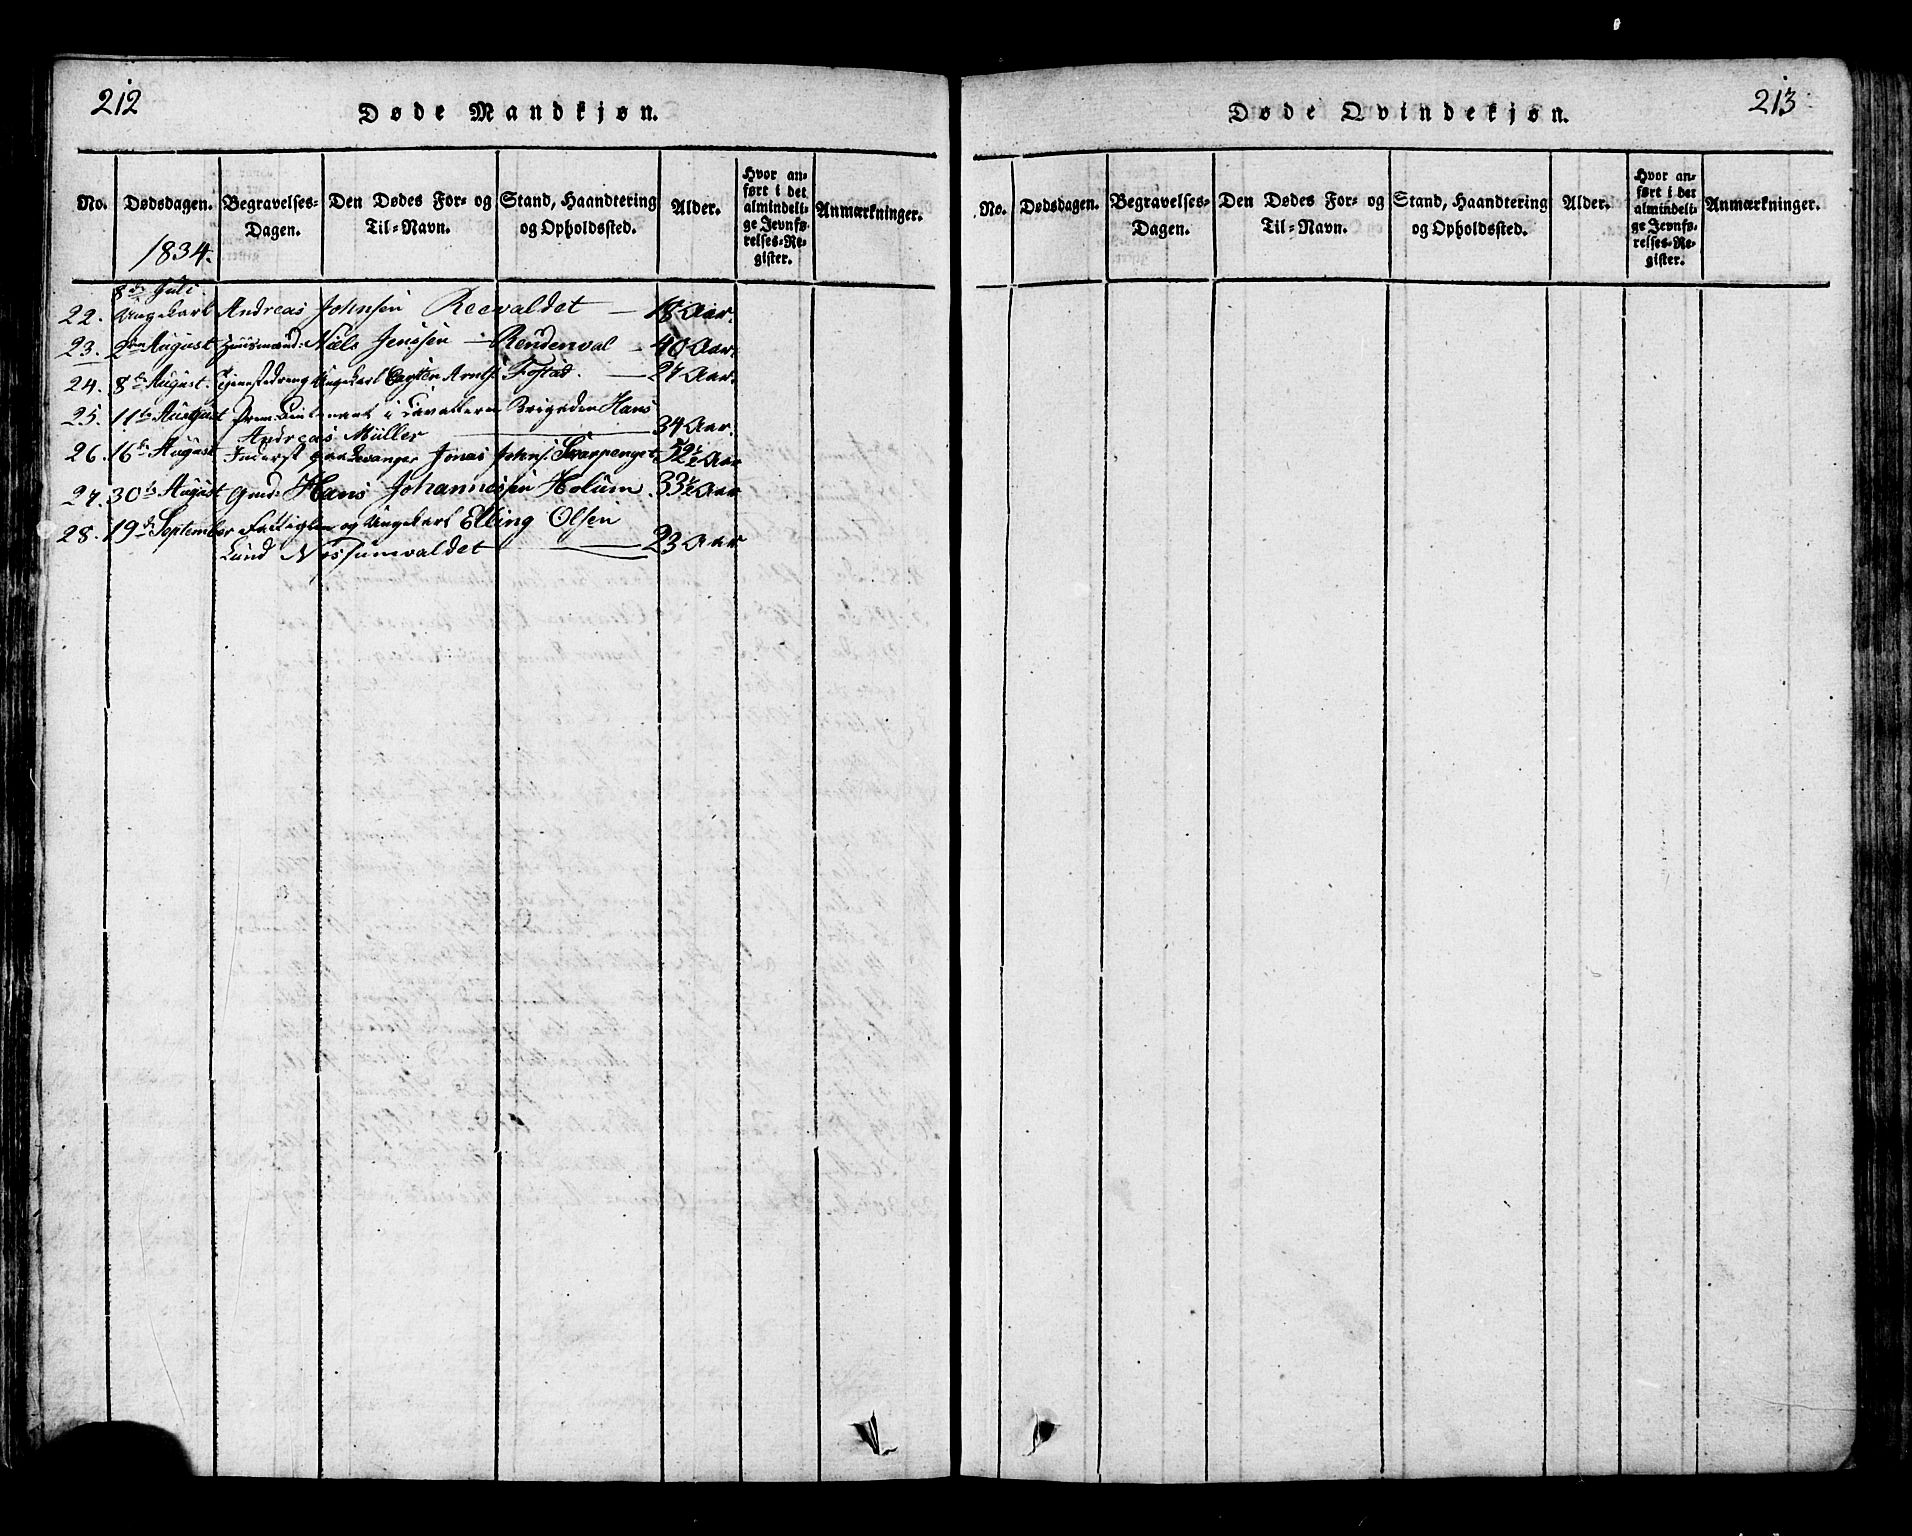 212
Døde Mandkjøn.
No.
Dødsdagen.
Begravelses-
Dagen.
Den Dødes For- og
Til-Navn.
Stand, Haandtering
og Opholdssted.
Alder.
Hvor an-
ført i det
almindeli-
ge Jevnfø-
relses-Re-
gister.
Anmærkninger.
1834.
8de Juli
22. Ungekarl Andreas Johnsen Reevaldet — 18 Aar.
23. 2den August Huusmand: Niels Jenssen — Rendenval — 40 Aar.
24. 8de August. Tjenestedreng Ungekarl Arnts. Fostad. — 27 Aar.
25. 11te August Prem: Lieutenant i Cavallerie Brigaden Hans
Andreas Müller — 34 Aar.
26. 16de August Inderst paa Levanger Jonas Johns. 52½ Aar
27. 30te August Gmd: Hans Johannessen Holum. 33½ Aar
28. 19de September Fattiglem og Ungekarl Elling Olsen
Lund Nessumvaldet — 23 Aar
213
Døde Qvindekjøn.
No.
Dødsdagen.
Begravelses-
Dagen.
Den Dødes For- og
Til-Navn.
Stand, Haandtering
og Opholdssted.
Alder.
Hvor an-
ført i det
almindeli-
ge Jevnfø-
relses-Re-
gister.
Anmærkninger.